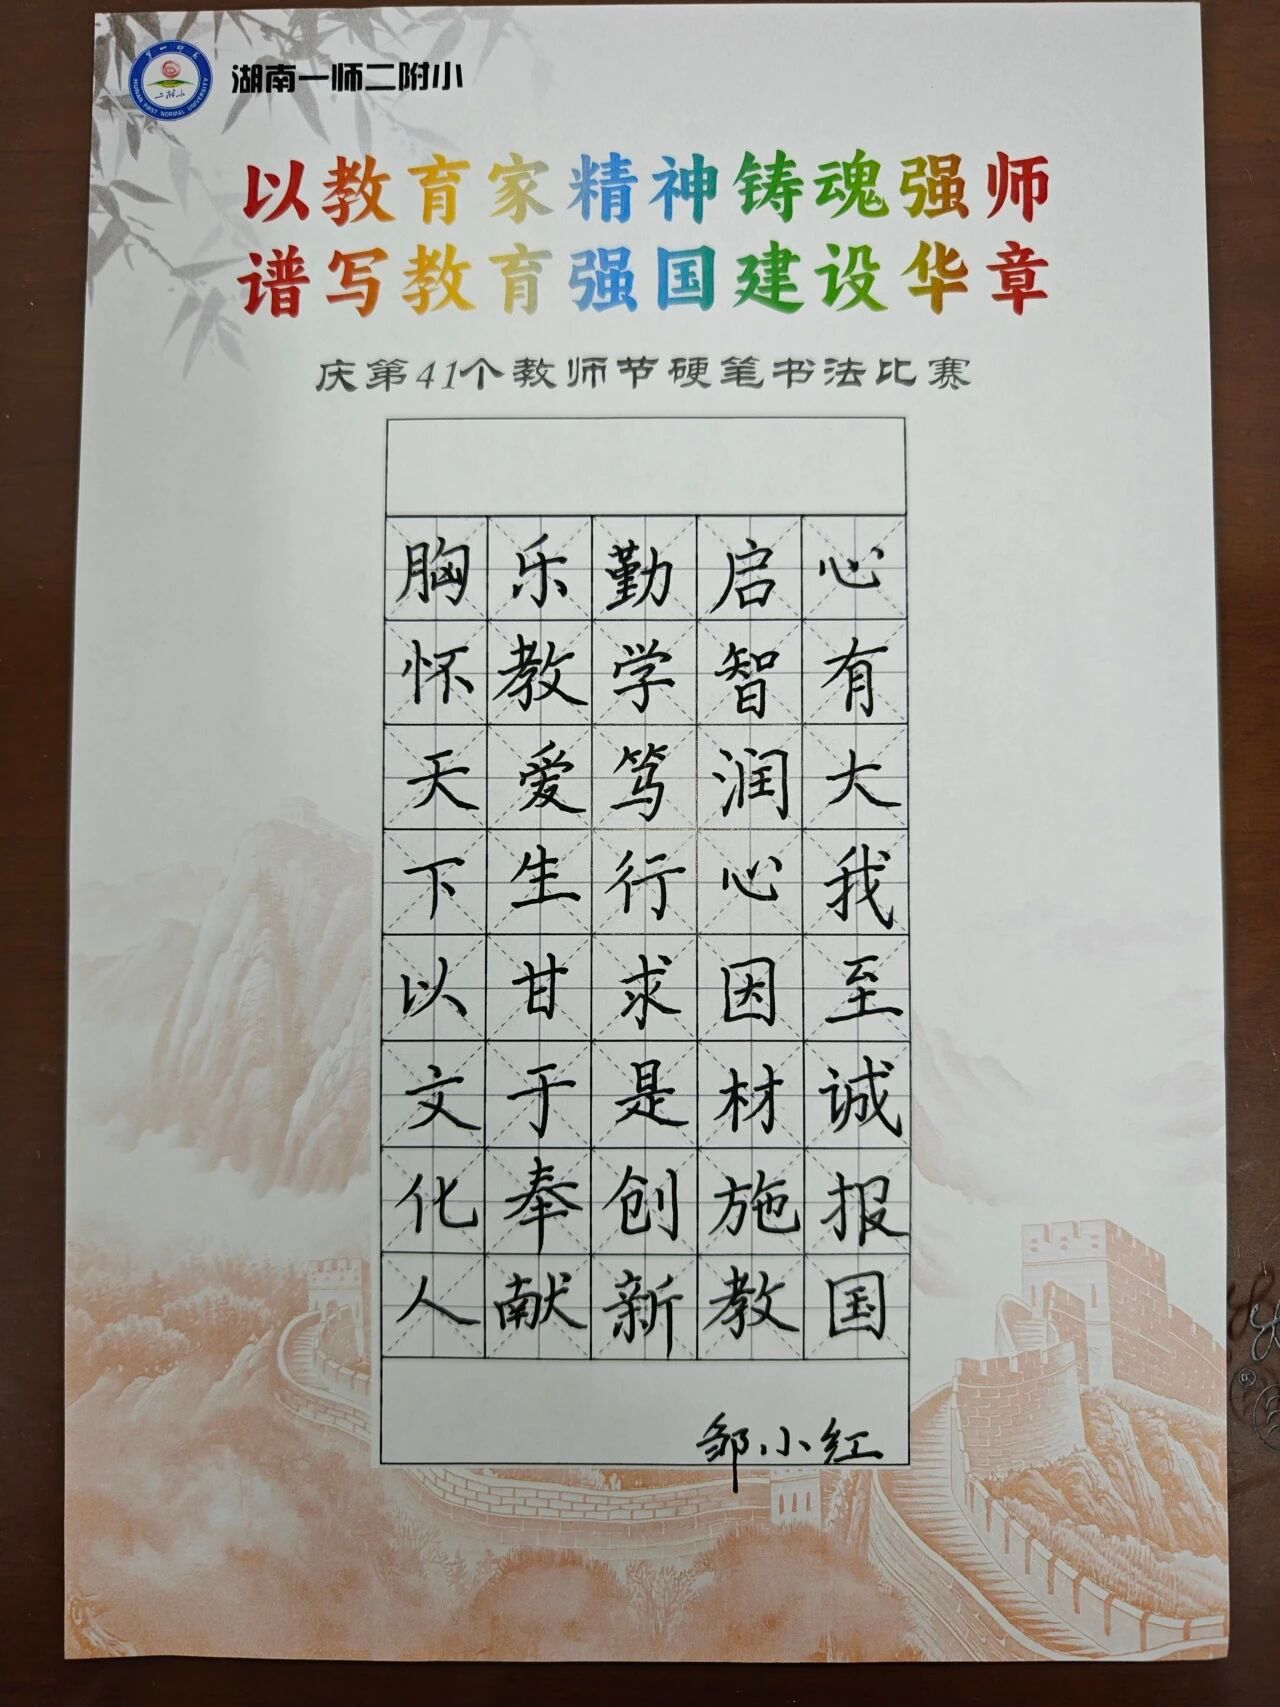 HUNAN FIRST NORMAL UNIVERSITY
二附小
湖南一师二附小
以教育家精神铸魂强师
谱写教育强国建设华章
庆第41个教师节硬笔书法比赛
心有大我至诚报国
启智润心因材施教
勤学笃行求是创新
乐教爱生甘于奉献
胸怀天下以文化人
邹小红